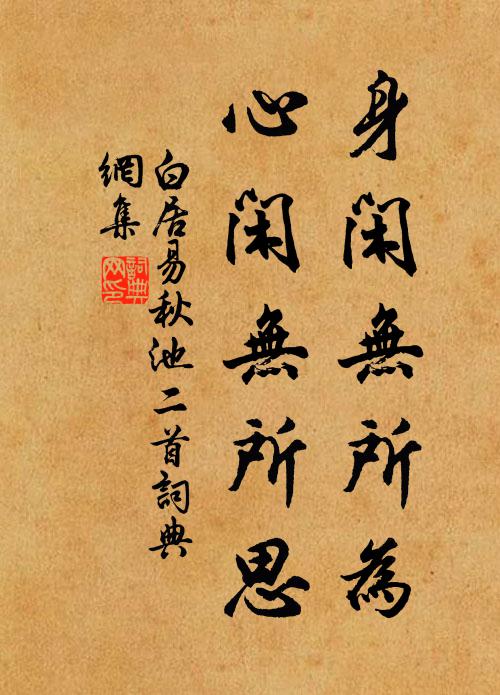 身閑無所為
心閑無所思
白居易秋池二首詞典
網集
詞典網印